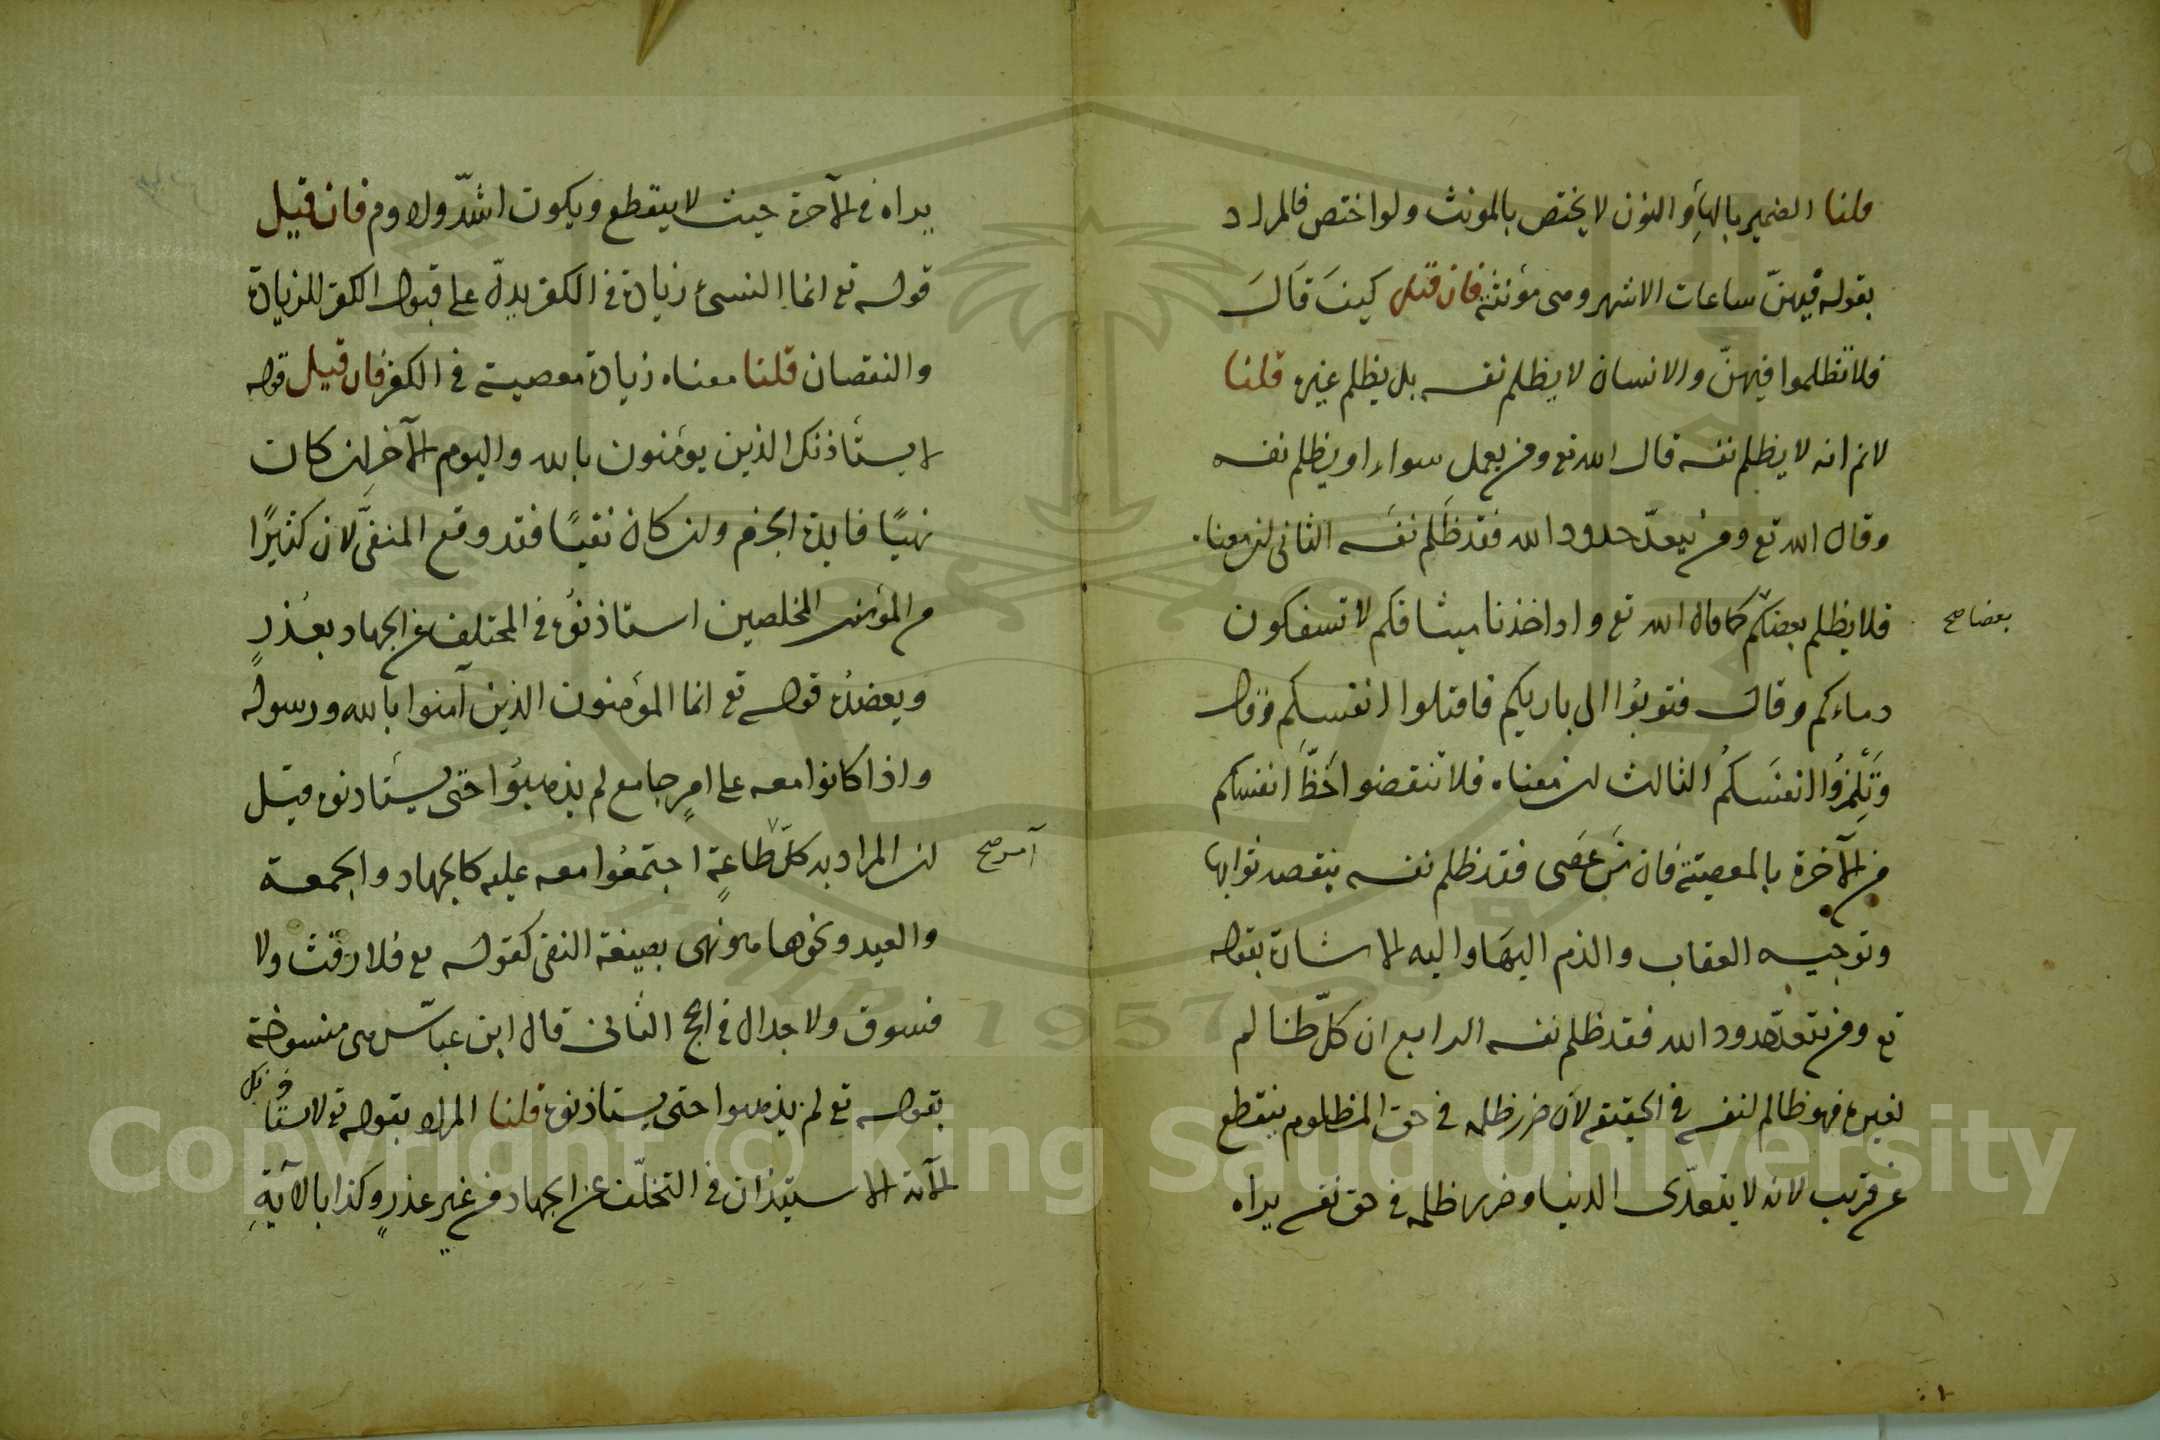 قلنا الضمير بالهاء والنون لا يختص بالمونث ولو اختص فالمراد
بقوله فيهنّ ساعات الاشهر وهى مؤنثة فان قيل كيفَ قَالَ
فلا تظلموا فيهنّ والانسان لا يظلم نفسه بل يظلم غيره قلنا
لانم انه لا يظلم نفسه قال الله تع ومن يعمل سواء او يظلم نفسه
وقال الله تع ومن يتعدّ حدود الله فقد ظَلم نفسَه الثانى ان معناه
فلا يظلم بعضكم كما قال الله تع واذ اخذنا ميثاقكم لا تسفكون
بعضا صح
دماءكم وقال فتوبُوا الى باريكم فاقتلوا انفسكم وقال
وَتَلْمِزُوا انفسَكمُ الثالث ان معناه فلا تنقضوا حَظَّ انفسكم
من الآخرة بالمعصية فان مَن عَصَى فقد ظلم نفسه بنقصه ثوابها
وتوجيه العقاب والذم اليهَا واليه الاشارة بقوله
تع ومن يتعدّ حدود الله فقد ظلم نفسه الرابع ان كلّ ظالم
لغيره فهو ظالم لنفسه فى الحقيقة لأن ضرر ظلمه فى حق المظلوم ينقطع
عن قريب لانه لا يتعدّى الدنيا وضرر ظلمه فى حق نفسه يراه
يراه فى الآخرة حيث لا ينقطع ويكون اشدّ وادوم فان قيل
قوله تع انما النسئ زيادة فى الكفر يدلّ على قبول الكفر للزيادة
والنقصان قلنا معناه زيادة معصية فى الكفر فان قيل قوله
لا يستأذنك الذين يؤمنون بالله واليوم الآخر ان كان
نهيًا فاين الجزم وان كان نفيًا فقد وقع المنفىَّ لان كثيرًا
من المؤمنين المخلصين استاذنوُه فى التخلف عن الجهاد بعُذرٍ
ويعضدُه قوله تع انما المؤمنون الذين آمنوا بالله ورسوله
واذا كانوا معه على امرٍ جامع لم يذهبُوا حتى يستأذنوه قيل
ان المراد به كلّ طاعةٍ اجتمعُوا معه عليه كالجهاد والجمعة
والعيد ونحوها هو نهى بصيغة النفى كقوله تع فلا رفث ولا
فسوق ولا جدال فى الحج الثانى قال ابن عبّاس هى منسوخة
بقوله تع لم يذهبوا حتى يستاذنوه قلنا المراد بقوله تع لا يستأذنك
الآية الاستيذان فى التخلّف عن الجهاد من غيرِ عذرٍ وكذا بالآيةِ
Copyright © King Saud University
1957